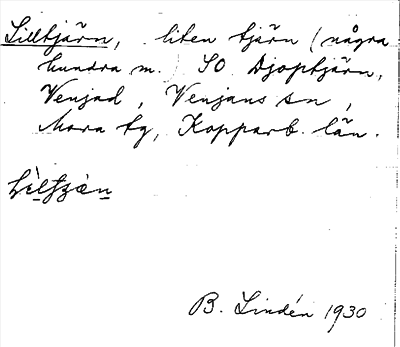 Lilltjärn, liten tjärn (några
hundra m.) SO Djoptjärn,
Venjad, Venjans sn,
Mora tg, Kopparb. län.
B. Lindén 1930